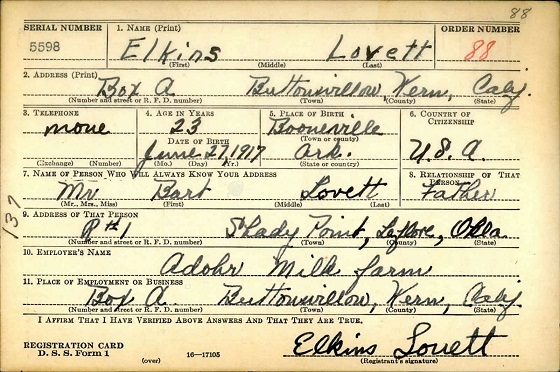 88
SERIAL NUMBER 1. NAME (Print) ORDER NUMBER
5598 Elkins Lovett 88
(First) (Middle) (Last)
2. ADDRESS (Print)
Box A Buttonwillow Kern, Calif.
(Number and street or R. F. D. number) (Town) (County) (State)
3. TELEPHONE 4. AGE IN YEARS 5. PLACE OF BIRTH 6. COUNTRY OF CITIZENSHIP
none 23 Booneville
DATE OF BIRTH (Town or county)
June 27, 1917 Ark. U.S.A.
(Exchange) (Number) (Mo.) (Day) (Yr.) (State or country)
7. NAME OF PERSON WHO WILL ALWAYS KNOW YOUR ADDRESS 8. RELATIONSHIP OF THAT PERSON
Mr Bart Lovett Father
(Mr., Mrs., Miss) (First) (Middle) (Last)
137
9. ADDRESS OF THAT PERSON
R#1 Shady Point, Leflore, Okla.
(Number and street or R. F. D. number) (Town) (County) (State)
10. EMPLOYER'S NAME
Adohr Milk farm
11. PLACE OF EMPLOYMENT OR BUSINESS
Box A. Buttonwillow, Kern, Calif.
(Number and street or R. F. D. number) (Town) (County) (State)
I AFFIRM THAT I HAVE VERIFIED ABOVE ANSWERS AND THAT THEY ARE TRUE.
REGISTRATION CARD
D. S. S. Form 1 (over) 16—17105 Elkins Lovett
(Registrant's signature)